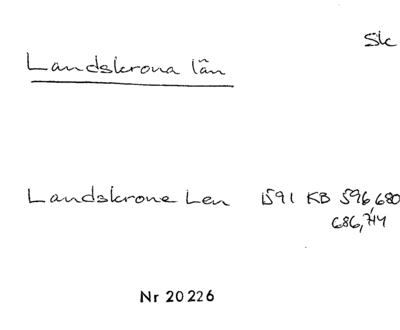 Sk
Landskrona län
Landskrone Len 1591 KB 596, 680
686, 714
Nr 20226